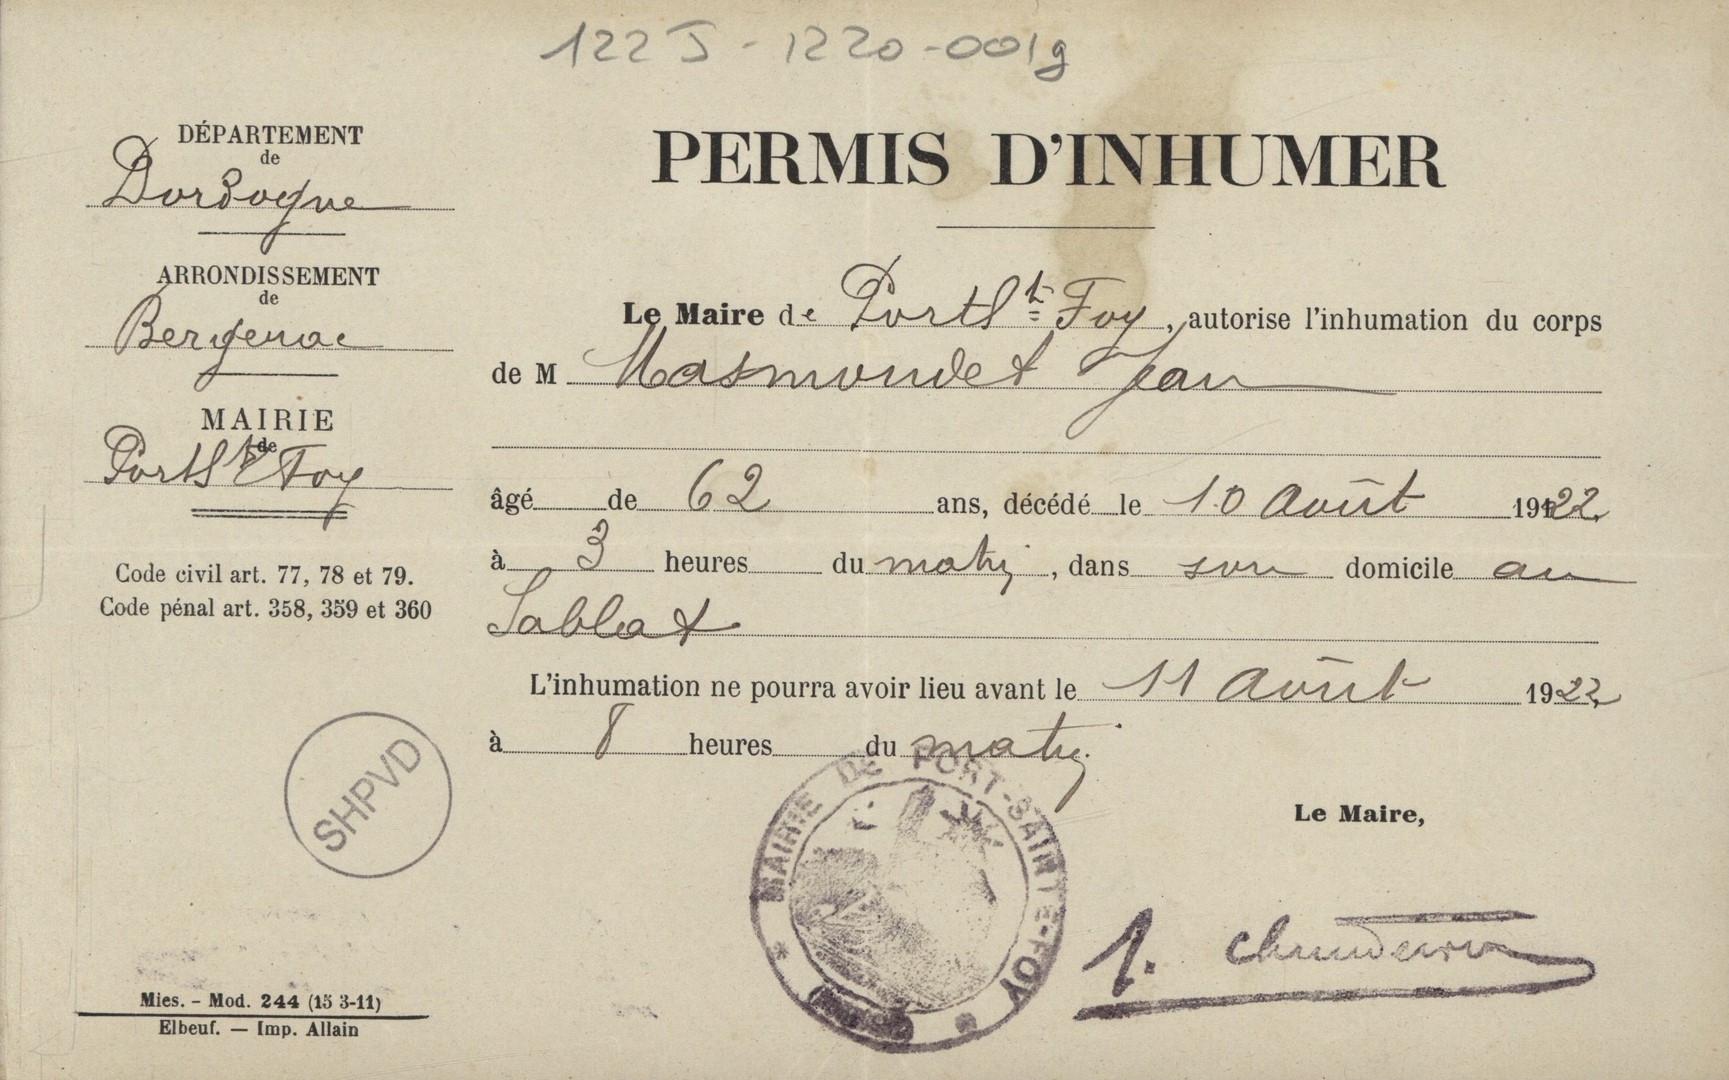 122 J - 1220 - 0019
DÉPARTEMENT
de
Dordogne
ARRONDISSEMENT
de
Bergerac
MAIRIE
de
Port Ste Foy
Code civil art. 77, 78 et 79.
Code pénal art. 358, 359 et 360
SHPVD
Mies. - Mod. 244 (15 3-11)
Elbeuf. — Imp. Allain
PERMIS D'INHUMER
Le Maire de Port Ste Foy, autorise l'inhumation du corps
de M Masmondet Jean
âgé de 62 ans, décédé le 10 Août 1922
à 3 heures du matin, dans son domicile au
Sablat
L'inhumation ne pourra avoir lieu avant le 11 Août 1922
à 8 heures du matin.
Le Maire,
MAIRIE DE PORT-SAINTE-FOY